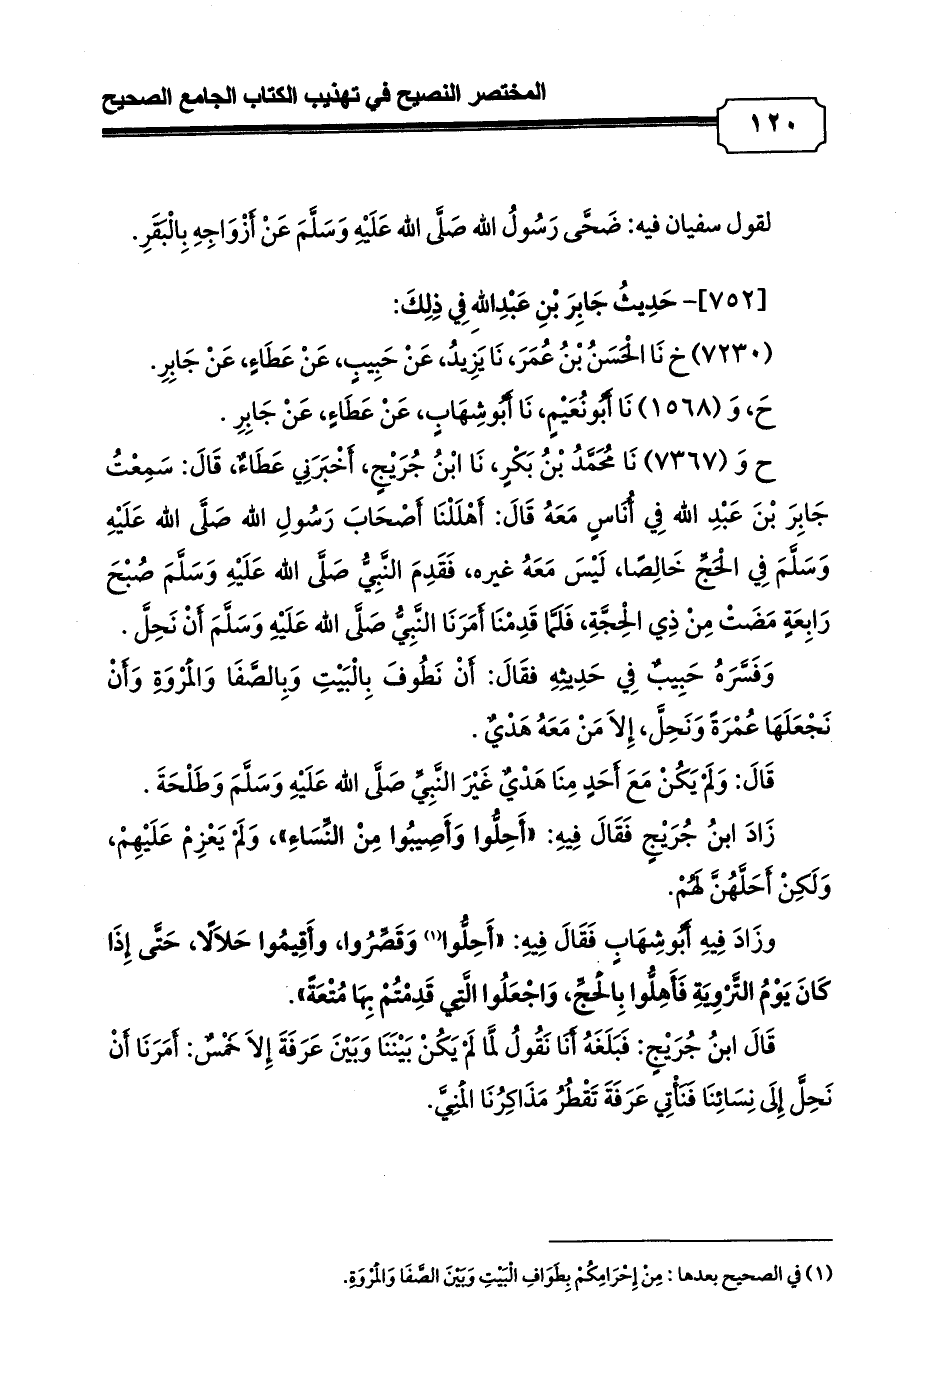 المختصر النصيح في تهذيب الكتاب الجامع الصحيح
١٢٠
لقول سفيان فيه: ضَحَّى رَسُولُ الله صَلَّى الله عَلَيْهِ وَسَلَّمَ عَنْ أَزْوَاجِهِ بِالْبَقَرِ.
[٧٥٢]- حَدِيثُ جَابِرَ بْنِ عَبْدِالله فِي ذِلِكَ:
(٧٢٣٠) خ نَا الْحَسَنُ بْنُ عُمَرَ، نَا يَزِيدُ، عَنْ حَبِيبٍ، عَنْ عَطَاءٍ، عَنْ جَابِرِ.
حَ، وَ (١٥٦٨) نَا أَبُونُعَيْمٍ، نَا أَبُوشِهَابٍ، عَنْ عَطَاءٍ، عَنْ جَابِرِ .
ح وَ (٧٣٦٧) نَا مُحَمَّدُ بْنُ بَكْرٍ، نَا ابْنُ جُرَيْجٍ، أَخْبَرَنِي عَطَاءٌ، قَالَ: سَمِعْتُ
جَابِرَ بْنَ عَبْدِ الله فِي أُنَاسٍ مَعَهُ قَالَ: أَهْلَلْنَا أَصْحَابَ رَسُولِ الله صَلَّى الله عَلَيْهِ
وَسَلَّمَ فِي الْحَجِّ خَالِصًا، لَيْسَ مَعَهُ غيره، فَقَدِمَ النَّبِيُّ صَلَّى الله عَلَيْهِ وَسَلَّمَ صُبْحَ
رَابِعَةٍ مَضَتْ مِنْ ذِي الْحِجَّةِ، فَلَمَّا قَدِمْنَا أَمَرَنَا النَّبِيُّ صَلَّى الله عَلَيْهِ وَسَلَّمَ أَنْ نَحِلَّ .
وَفَسَّرَهُ حَبِيبٌ فِي حَدِيثِهِ فقَالَ: أَنْ نَطُوفَ بِالْبَيْتِ وَبِالصَّفَا وَالْمَرْوَةِ وَأَنْ
نَجْعَلَهَا عُمْرَةً وَنَحِلَّ، إِلاَ مَنْ مَعَهُ هَدْيٌ .
قَالَ: وَلَمْ يَكُنْ مَعَ أَحَدٍ مِنَا هَدْيٌ غَيْرَ النَّبِيِّ صَلَّى الله عَلَيْهِ وَسَلَّمَ وَطَلْحَةَ .
زَادَ ابنُ جُرَيْجٍ فَقَالَ فِيهِ: «أَحِلُّوا وَأَصِيبُوا مِنْ النِّسَاءِ»، وَلَمْ يَعْزِمْ عَلَيْهِمْ،
وَلَكِنْ أَحَلَّهُنَّ لَهُمْ.
وزَادَ فِيهِ أَبُوشِهَابٍ فَقَالَ فِيهِ: «أَحِلُّوا(١) وَقَصِّرُوا، وأَقِيمُوا حَلاَلًا، حَتَّى إِذَا
كَانَ يَوْمُ التَّرْوِيَةِ فَأَهِلُّوا بِالْحَجِّ، وَاجْعَلُوا الَّتِي قَدِمْتُمْ بِهَا مُتْعَةً».
قَالَ ابنُ جُرَيْجٍ: فَبَلَغَهُ أَنَا نَقُولُ لَمَّا لَمْ يَكُنْ بَيْنَنَا وَبَيْنَ عَرَفَةَ إِلاَ خَمْسٌ: أَمَرَنَا أَنْ
نَحِلَّ إِلَى نِسَائِنَا فَنَأْتِي عَرَفَةَ تَقْطُرُ مَذَاكِرُنَا الْمَنِيَّ.
(١) في الصحيح بعدها : مِنْ إِحْرَامِكُمْ بِطَوَافِ الْبَيْتِ وَبَيْنَ الصَّفَا وَالْمَرْوَةِ.